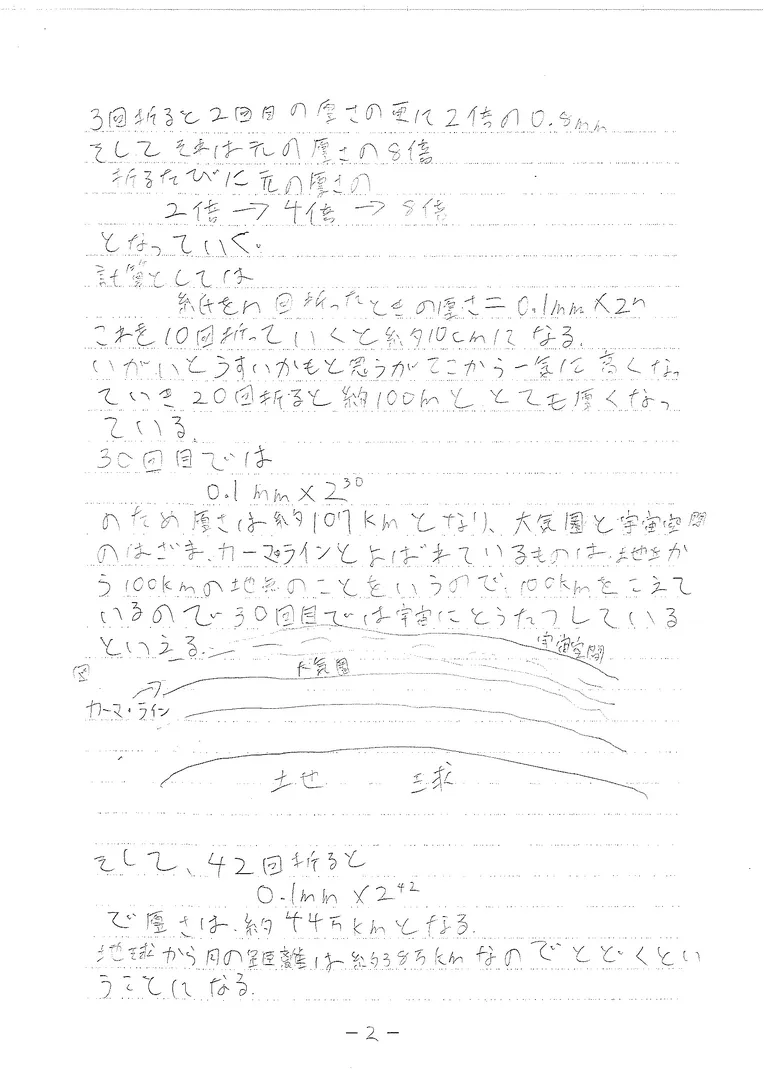 3回折ると2回目の厚さの更に2倍の0.8mm
そしてそれは元の厚さの8倍
折るたびに元の厚さの
2倍→4倍→8倍
となっていく。
計算としては
紙をn回折ったときの厚さ=0.1mm×2n
これを10回折っていくと約10cmになる.
いがいとうすいかもと思うがてこから一気に高くなっ
ていき20回折ると約100mと とても厚くなっ
ている.
30回目では
0.1mm×2³⁰
のため厚さは約107kmとなり、大気圏と宇宙空間
のはざま、カーマ・ラインとよばれているものは、地上か
ら100kmの地点のことをいうので、100kmをこえて
いるので30回目では宇宙にとうたつしている
といえる.
宇宙空間
図
大気圏
カーマ・ライン
地 球
そして、42回折ると
0.1mm×2⁴²
で厚さは、約44万kmとなる.
地球から月の距離は約38万kmなのでとどくとい
うことになる.
-2-